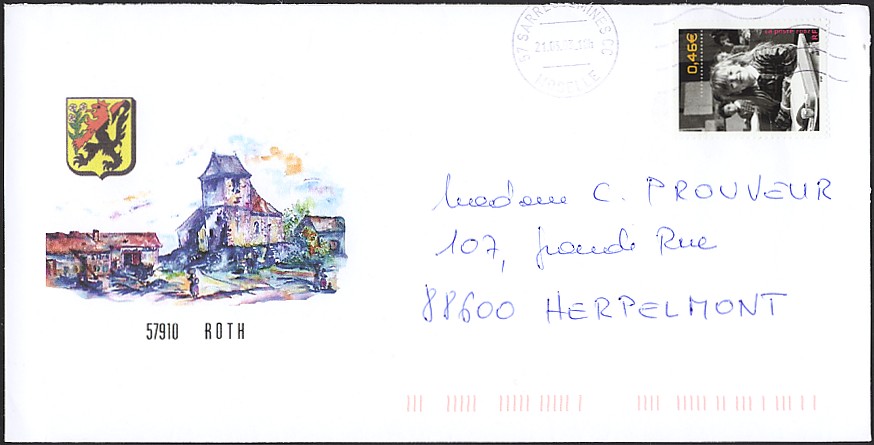 57 SARREGUEMINES CC
MOSELLE
0,46€
RF
Madame C. PROUVEUR
107, grande Rue
88600 HERPELMONT
57910 ROTH